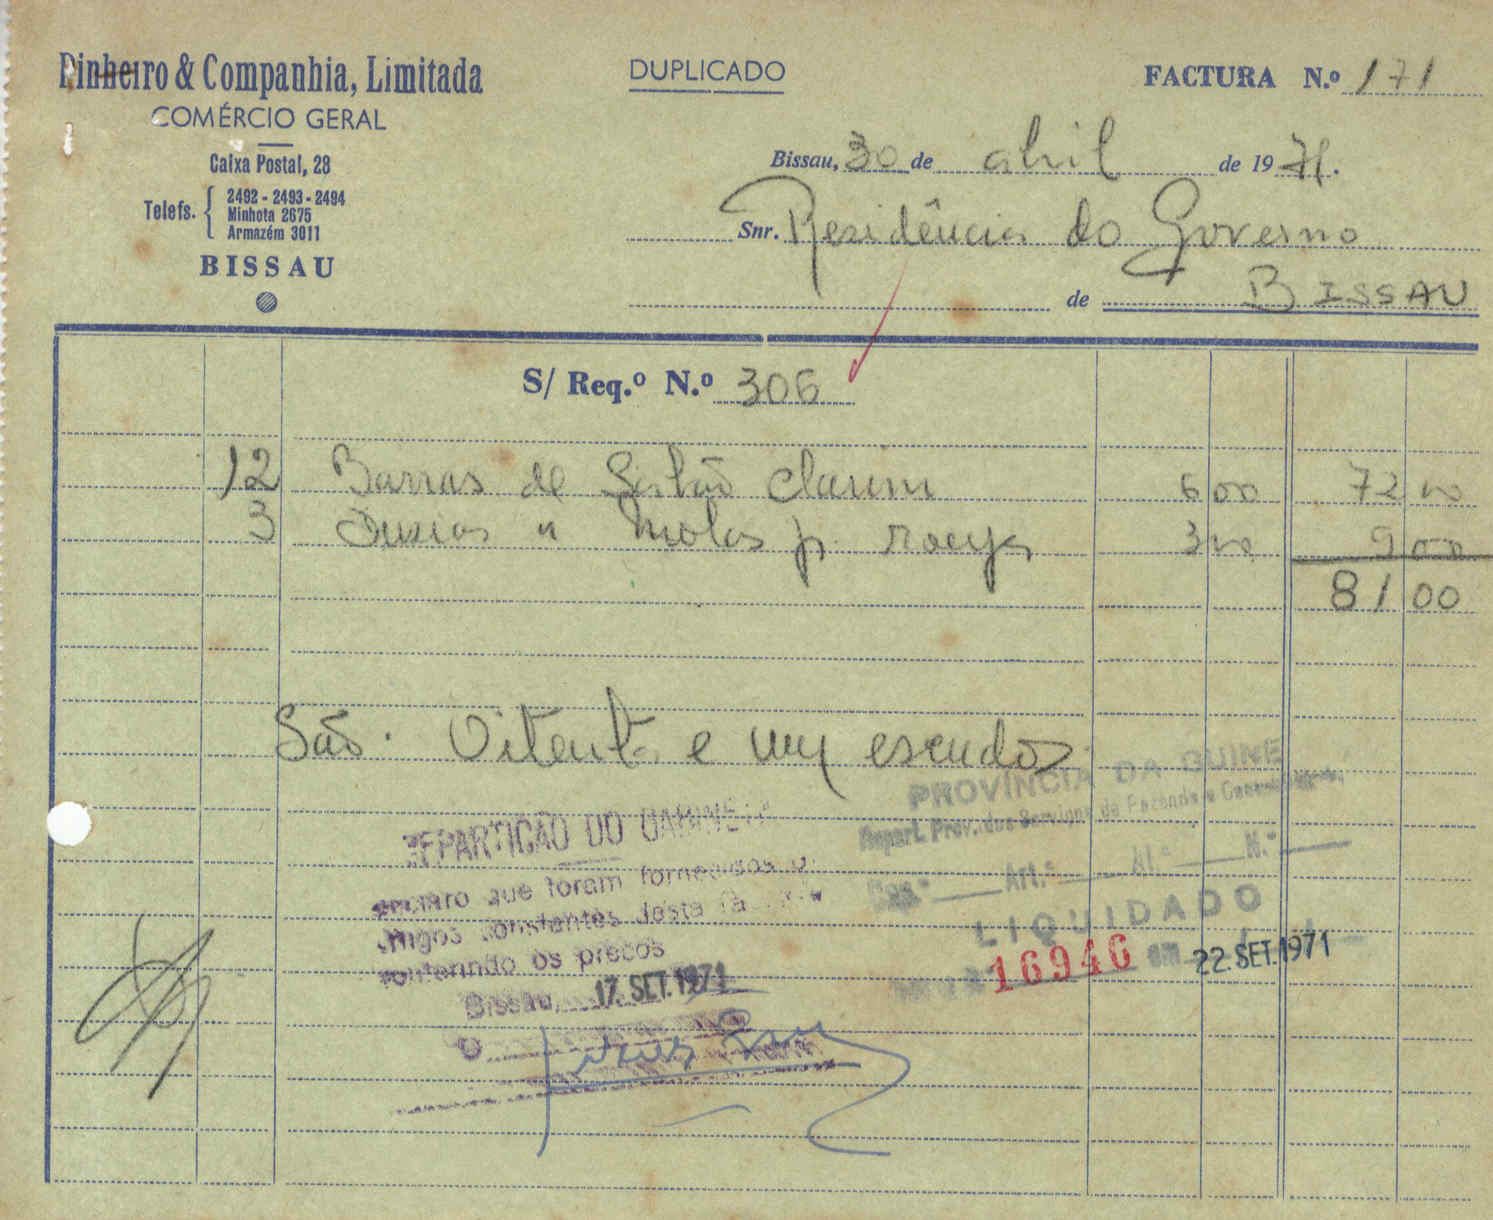 Pinheiro & Companhia, Limitada
COMÉRCIO GERAL
Caixa Postal, 28
Telefs. 2492 - 2493 - 2494
Minhota 2675
Armazém 3011
BISSAU
DUPLICADO
FACTURA N.º 171
Bissau, 30 de abril de 1971.
Snr. Residência do Governo
de BISSAU
S/ Req.º N.º 306
12 Barras de Sabão Clarim 6 00 72 00
3 Duzias " Molas p. roupa 3 00 9 00
81 00
São. Oitenta e um escudos
PROVÍNCIA DA GUINÉ
Repart. Prov. dos Serviços de Fazenda e
Cap.º Art.º Al.ª N.º
LIQUIDADO
16946 em 22. SET. 1971
REPARTIÇÃO DO GABINETE
que foram fornecidos
constantes desta
os preços
Bissau, 17. SET. 1971
O